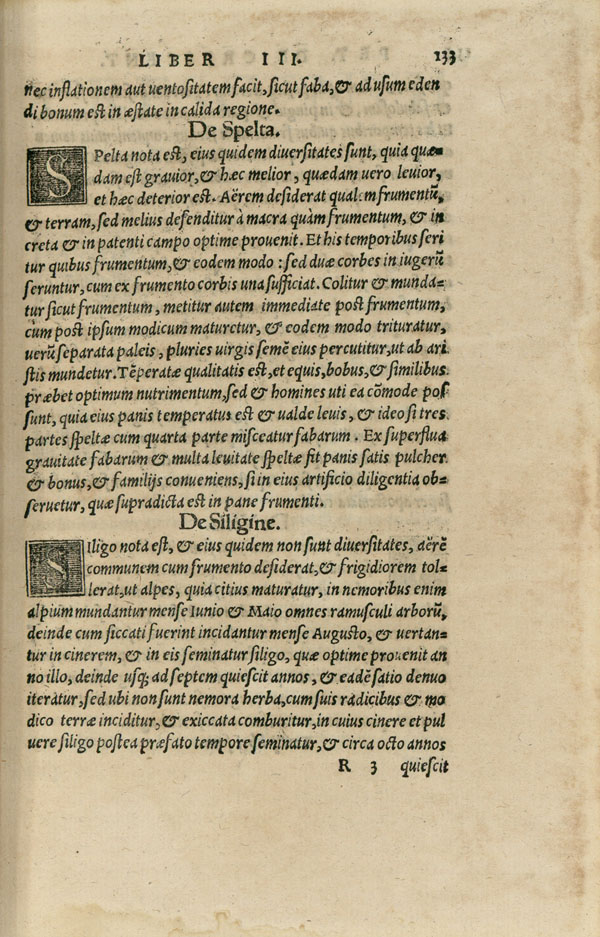 LIBER III. 133
nec inflationem aut uentositatem facit, sicut faba, & ad usum eden
di bonum est in æstate in calida regione.
De Spelta.
SPelta nota est, eius quidem diuersitates sunt, quia quæ-
dam est grauior, & hæc melior, quædam uero leuior,
et hæc deterior est. Aërem desiderat qualem frumentũ,
& terram, sed melius defenditur à macra quàm frumentum, & in
creta & in patenti campo optime prouenit. Et his temporibus seri
tur quibus frumentum, & eodem modo: sed duæ corbes in iugerũ
seruntur, cum ex frumento corbis una sufficiat. Colitur & munda-
tur sicut frumentum, metitur autem immediate post frumentum,
cùm post ipsum modicum maturetur, & eodem modo trituratur,
uerũ separata paleis, pluries uirgis semẽ eius percutitur, ut ab ari
stis mundetur. Tẽperatæ qualitatis est, et equis, bobus, & similibus
præbet optimum nutrimentum, sed & homines uti ea cõmode pos
sunt, quia eius panis temperatus est & ualde leuis, & ideo si tres
partes speltæ cum quarta parte misceatur fabarum. Ex superflua
grauitate fabarum & multa leuitate speltæ fit panis satis pulcher
& bonus, & familijs conueniens, si in eius artificio diligentia ob-
seruetur, quæ supradicta est in pane frumenti.
De Siligine.
SIligo nota est, & eius quidem non sunt diuersitates, aërẽ
communem cum frumento desiderat, & frigidiorem tol-
lerat, ut alpes, quia citius maturatur, in nemoribus enim
alpium mundantur mense Iunio & Maio omnes ramusculi arborũ,
deinde cum siccati fuerint incidantur mense Augusto, & uertan-
tur in cinerem, & in eis seminatur siligo, quæ optime prouenit an
no illo, deinde usq; ad septem quiescit annos, & eadẽ satio denuo
iteratur, sed ubi non sunt nemora herba, cum suis radicibus & mo
dico terræ inciditur, & exiccata comburitur, in cuius cinere et pul
uere siligo postea præfato tempore seminatur, & circa octo annos
R 3 quiescit